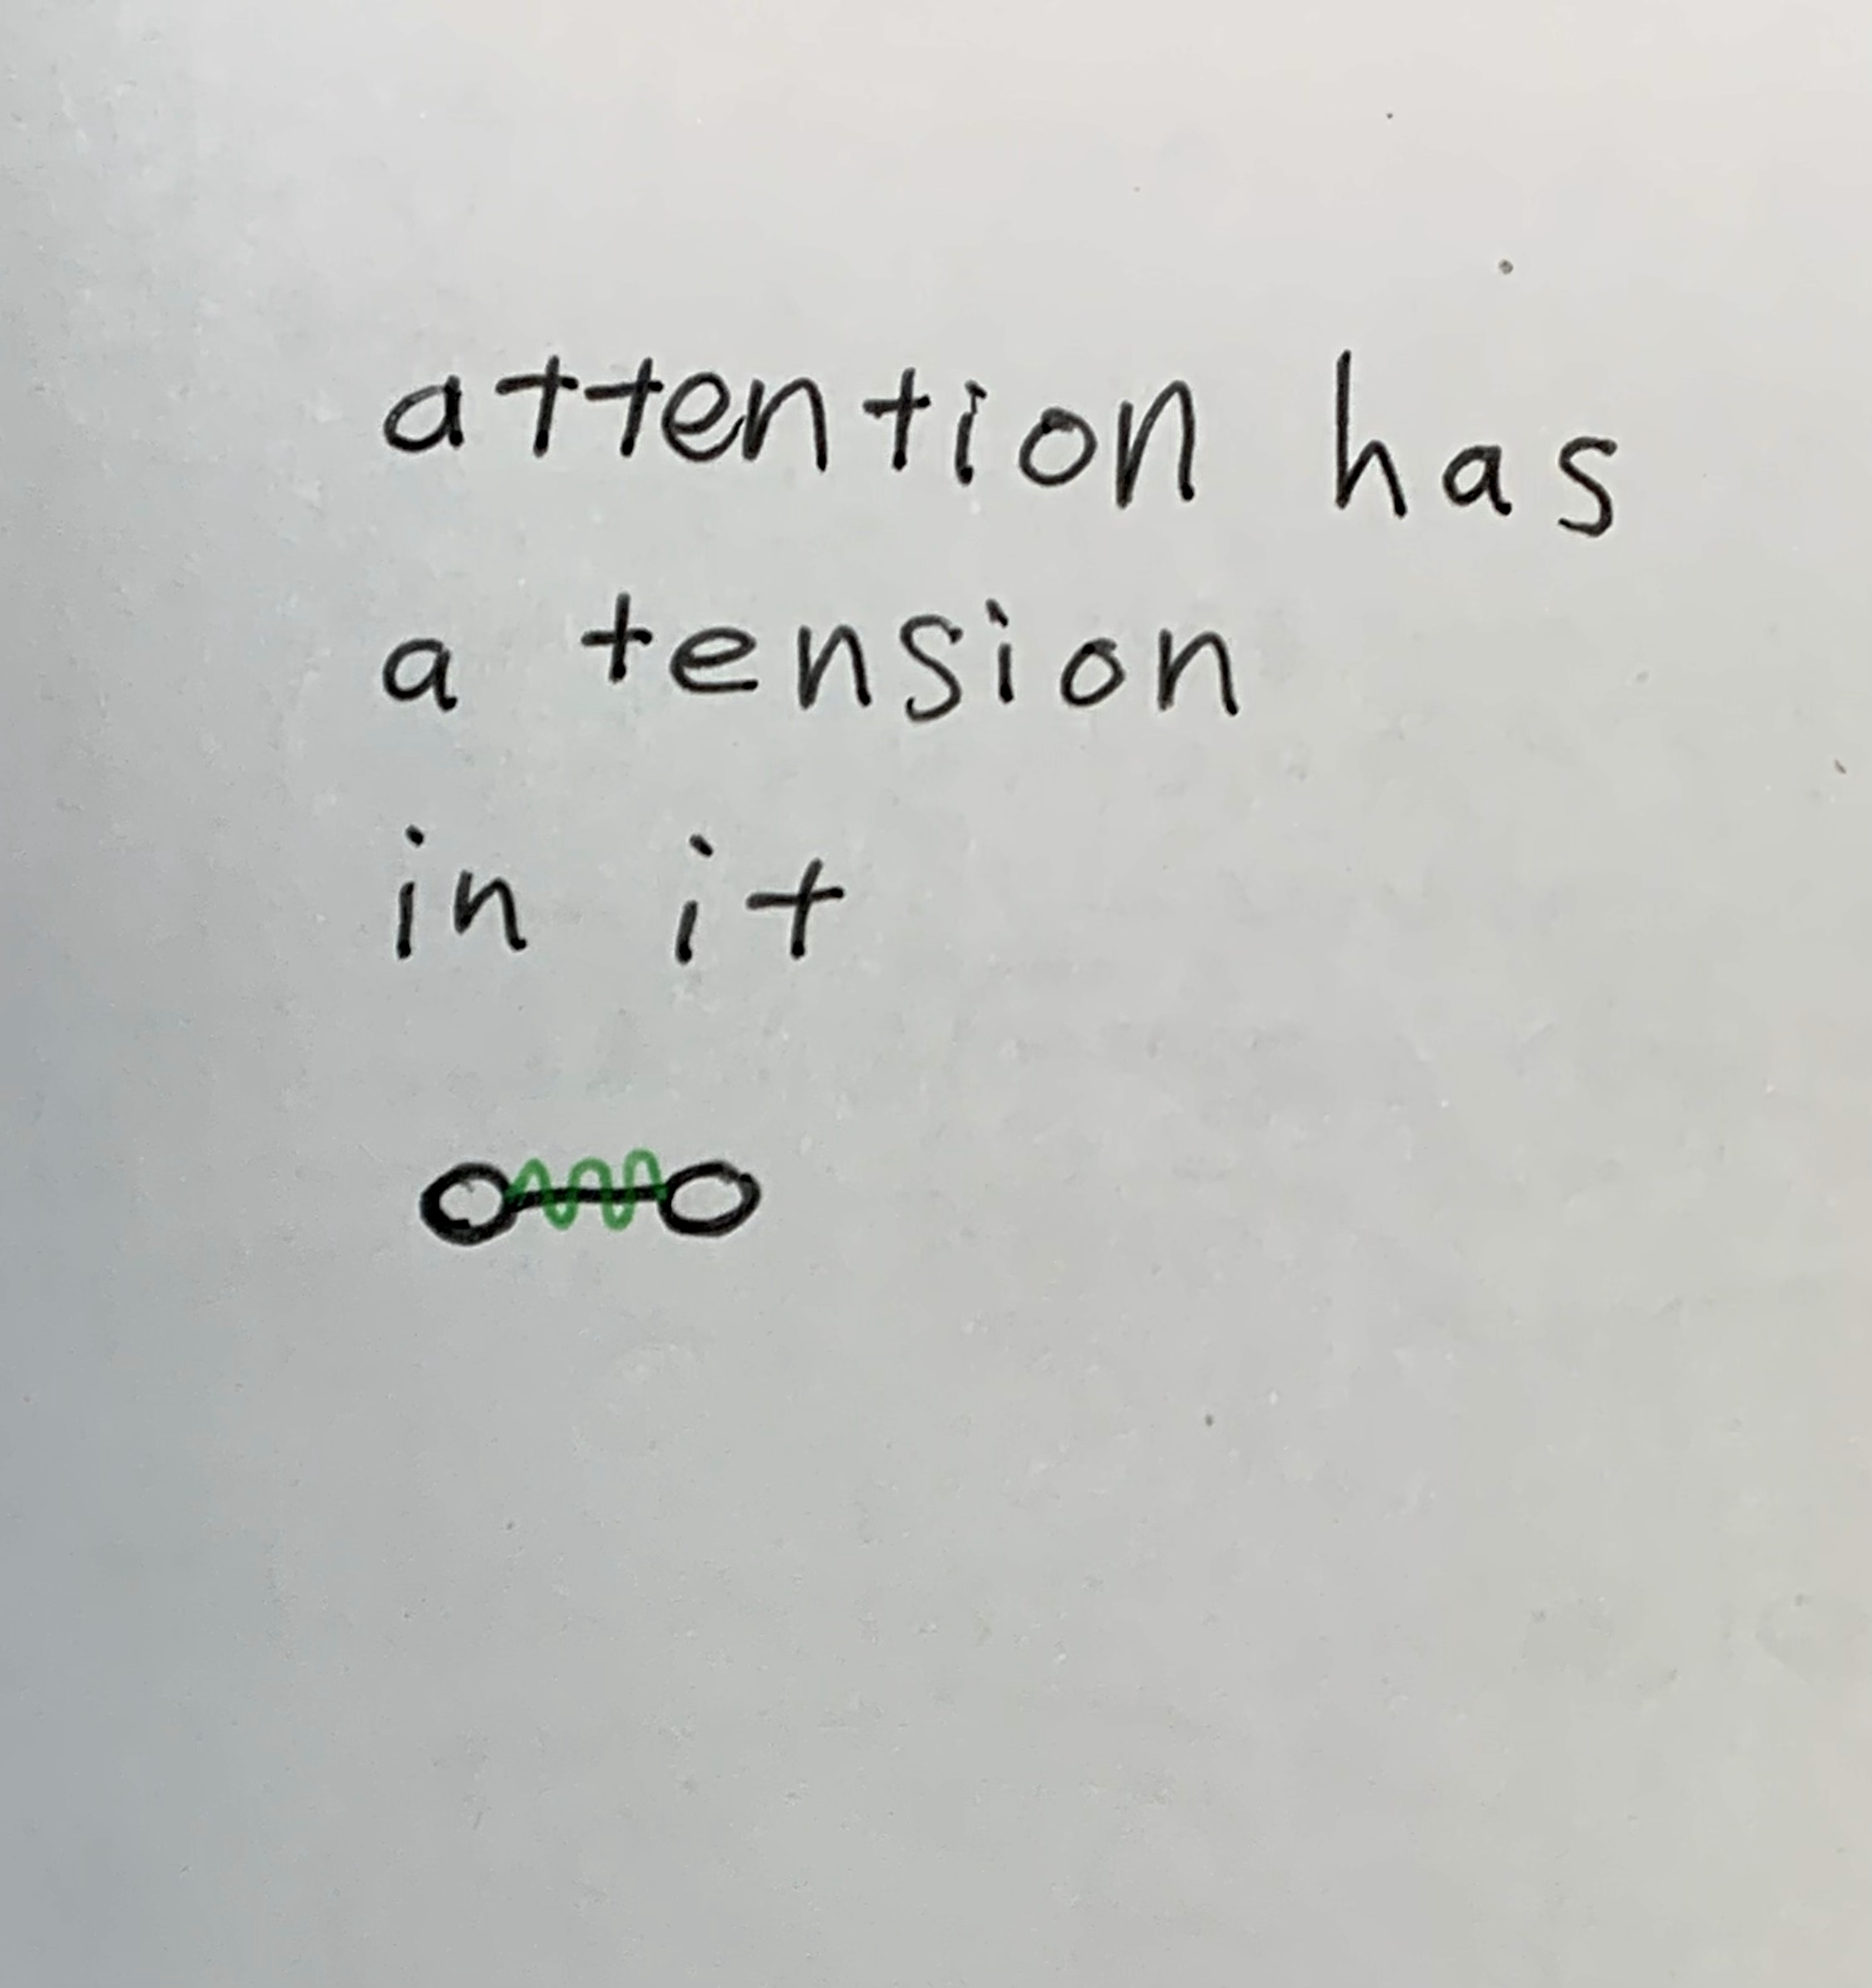 attention has
a tension
in it